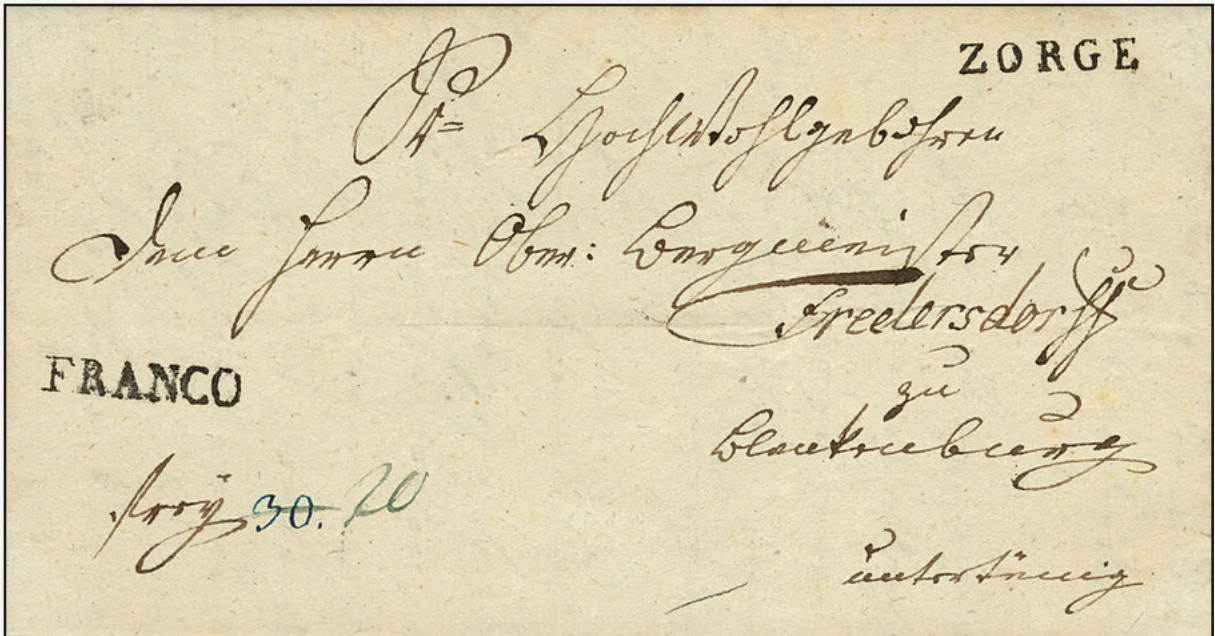 ZORGE
Sr= HochWohlgebohren
Dem Herrn Ober: Bergmeister
Fredersdorff
zu
Blankenburg
FRANCO
frey 30. 20
untertänig